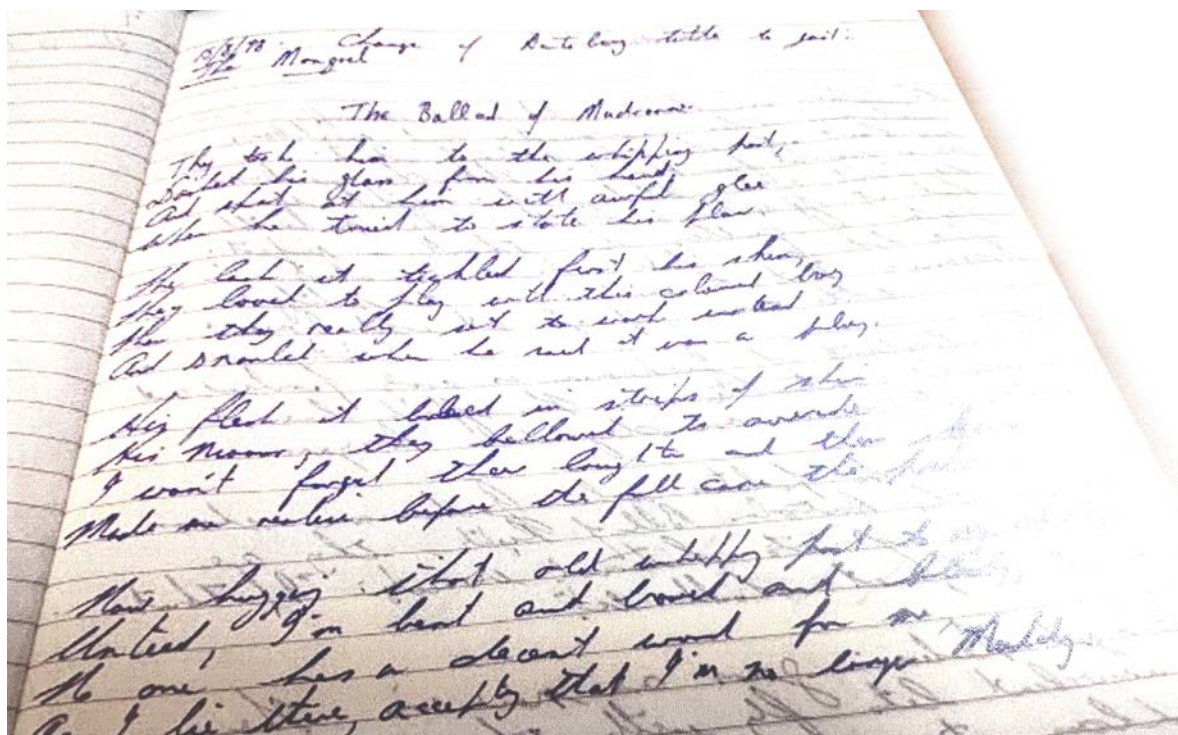 Change of title to suit:
The Mongrel
The Ballad of
They took him to the whipping post,
his glass from his hand,
And spat at him with awful glee
When he tried to state his plan
The lash it tickled first his skin,
They loved to play with this coloured boy
Then they really set to work instead
And snarled when he said it was a ploy.
His flesh it in strips of skin
His moans, they bellowed to
I won't forget their laughter and their
Made me realise before the fall came the
Now hugging that old whipping post to my
Untied, I'm bent and bowed and bloody,
No one has a decent word for me,
As I lie there, accepting that I'm no longer Muddy.